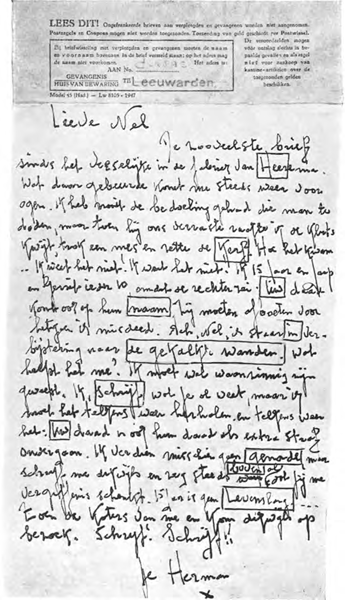 LEES DIT! Ongefrankeerde brieven aan verpleegden en gevangenen worden niet aangenomen.
Postzegels en Coupons mogen niet worden toegezonden. Toezending van geld geschiedt per Postwissel.
Bij briefwisseling met verpleegden en gevangenen moeten de naam
en voornaam bovenaan in de brief vermeld staan; op het adres mag
de naam niet voorkomen. Het adres is:
AAN No.
GEVANGENIS
HUIS VAN BEWARING TE Leeuwarden
Model 45 (Hul.) — Lw 8109 - 1947
Lieve Nel
Je zoveelste brief
sinds het vreselijke in de fabriek van Heerema.
Wat daar gebeurde komt me steeds weer voor
ogen. Ik heb nooit de bedoeling gehad die man te
doden, maar toen hij ons verraste raakte ik de kluts
kwijt trok een mes en rende de Kerf. Hoe het kwam
.. ik weet het niet. Ik weet het niet. Ik 15 jaar en Jaap
en Gerrit ieder 10, omdat de rechter zei: Uw daad
komt ook op hun naam, zij moeten ook boeten voor
hetgeen is misdeed. Ach, Nel, ik staar in ver-
bijstering naar de gekalkte wanden. Wat
helpt het me? Ik moet wel waanzinnig zijn
geweest. Ik schrijf wat je al weet, maar ik
moet het telkens weer herhalen en telkens weer
het: Uw daad is ook hun daad als extra straf
ondergaan. Ik verdien misschien geen genade maar
schrijf me dikwijls en zeg steeds dat je me
bovenal
vergiffenis schenkt. 15 jaar is geen levenslang...
Toon de katers van me en kom dikwijls op
bezoek. Schrijf! Schrijf!!
Je Herman
x